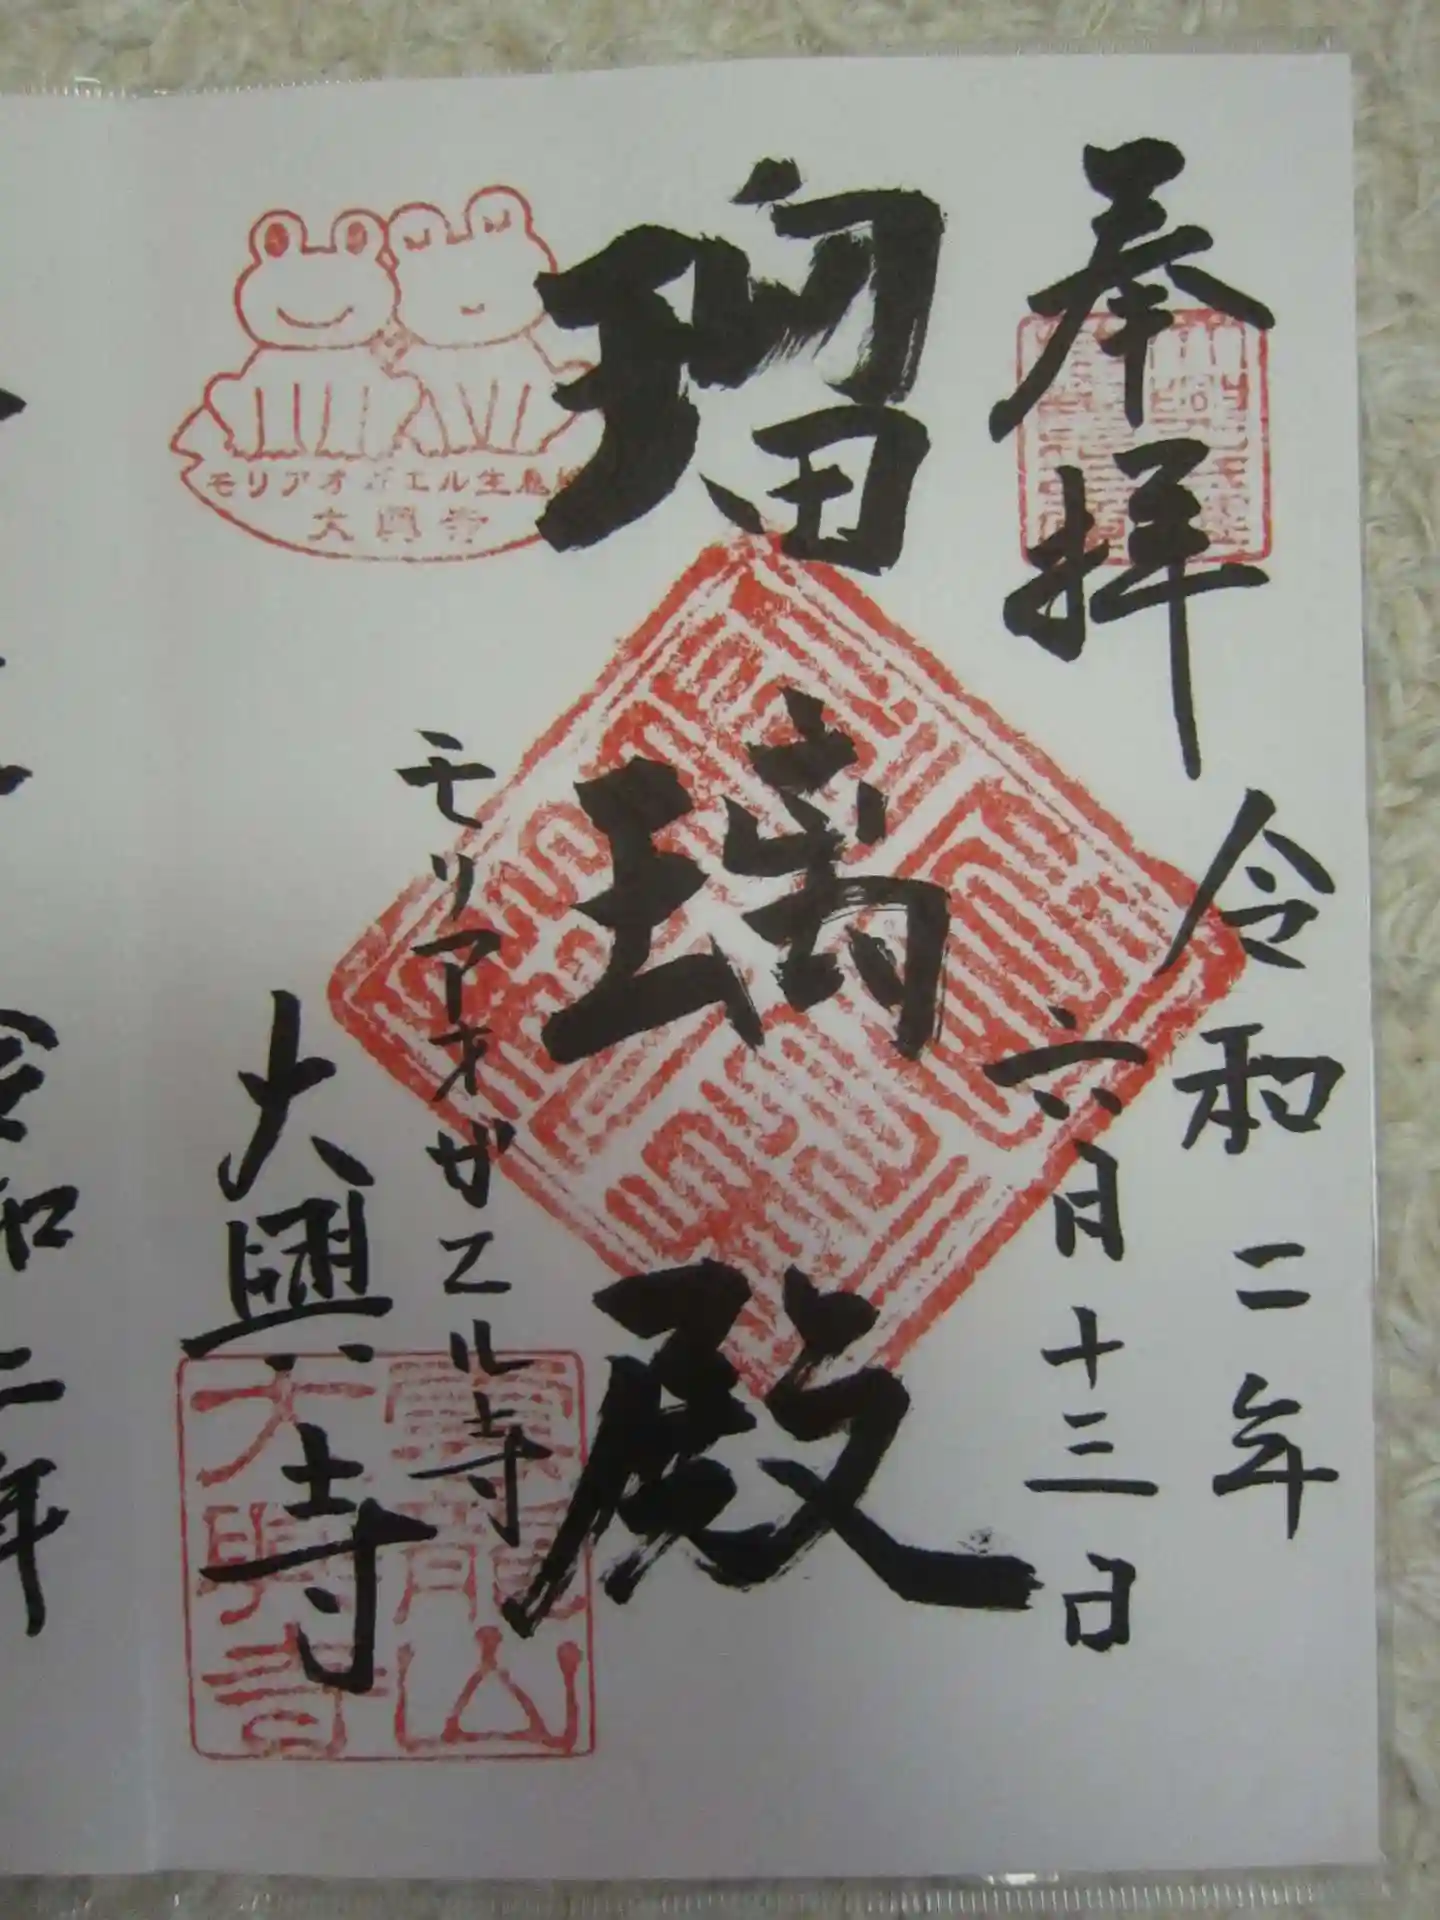 奉拝
令和二年
六月十三日
瑠璃殿
モリアオガエル寺
大興寺
モリアオガエル生息地
大興寺
龍山
大興寺
令和二年